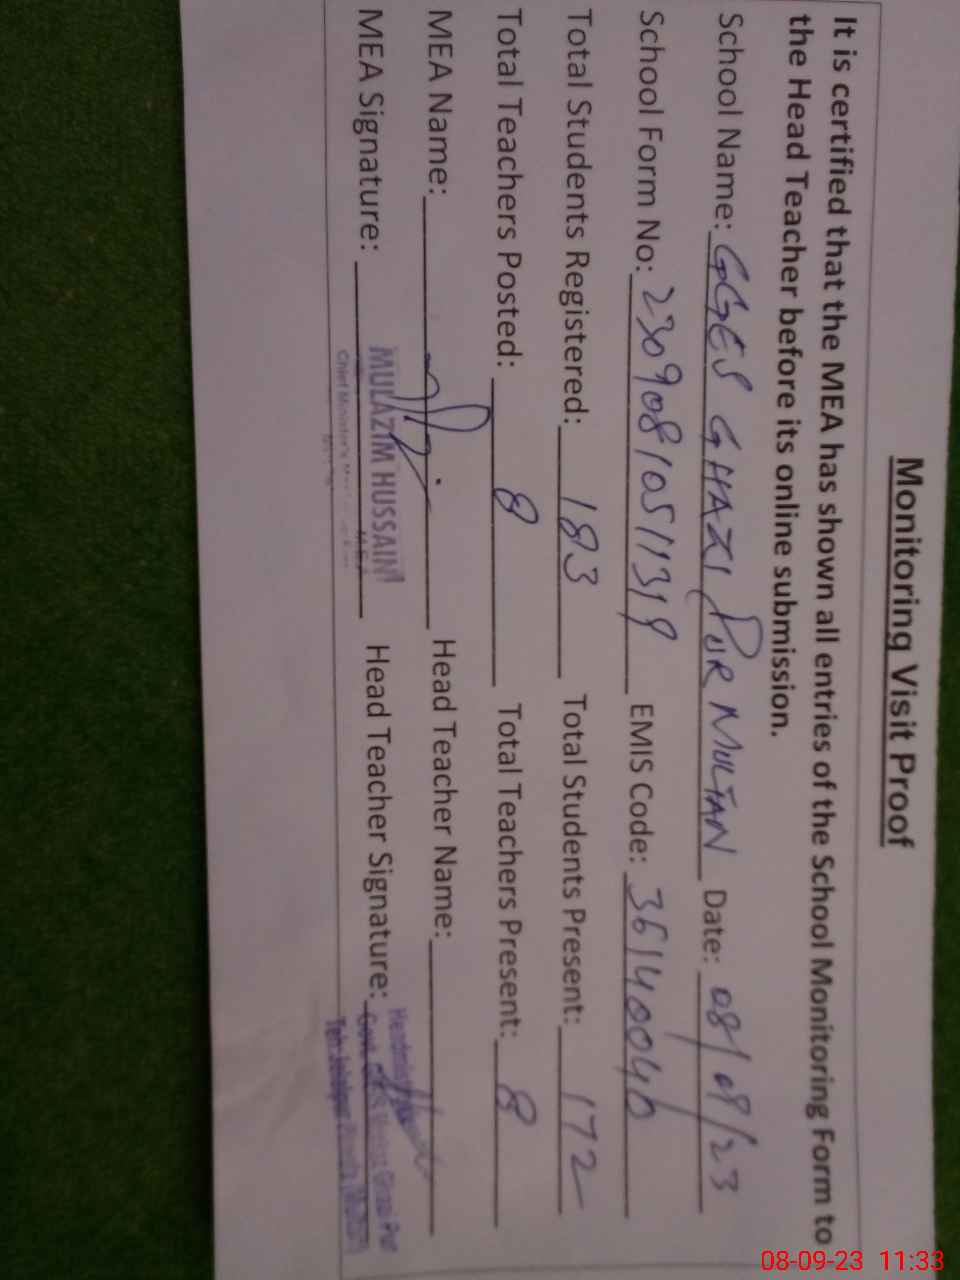 Monitoring Visit Proof
It is certified that the MEA has shown all entries of the School Monitoring Form to
the Head Teacher before its online submission.
School Name: GGES GHAZI PUR MULTAN Date: 08/09/23
School Form No: 23090810511319 EMIS Code: 36140040
Total Students Registered: 183 Total Students Present: 172
Total Teachers Posted: 8 Total Teachers Present: 8
MEA Name: Head Teacher Name:
MEA Signature: MULAZIM HUSSAIN Head Teacher Signature:
M.E.A
Chief Minister's
08-09-23 11:33